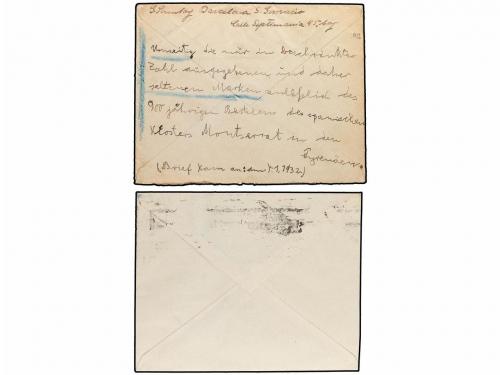 Barcelona S. Gervasio
Calle Septimania 45,
Umseitig die nur in beschränkter
Zahl ausgegebenen und daher
seltenen Marken anläßlich des
900 jährigen Bestehens des spanischen
Klosters Montserrat in den
Pyrenäen.
(Brief kam an: am 1.1.1932)